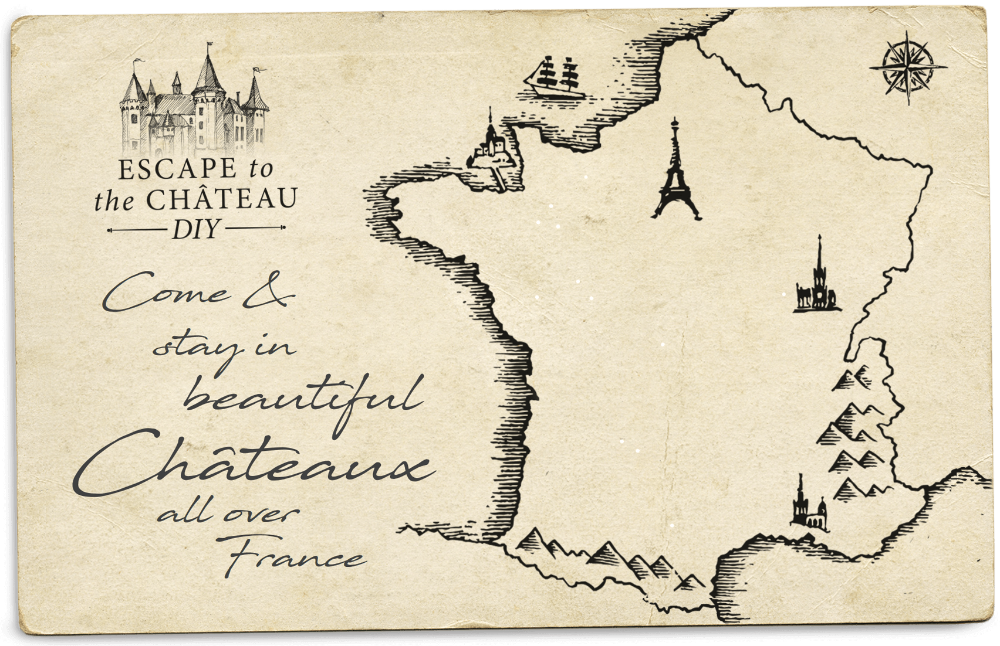 ESCAPE to
the CHÂTEAU
DIY
Come &
stay in
beautiful
Châteaux
all over
France